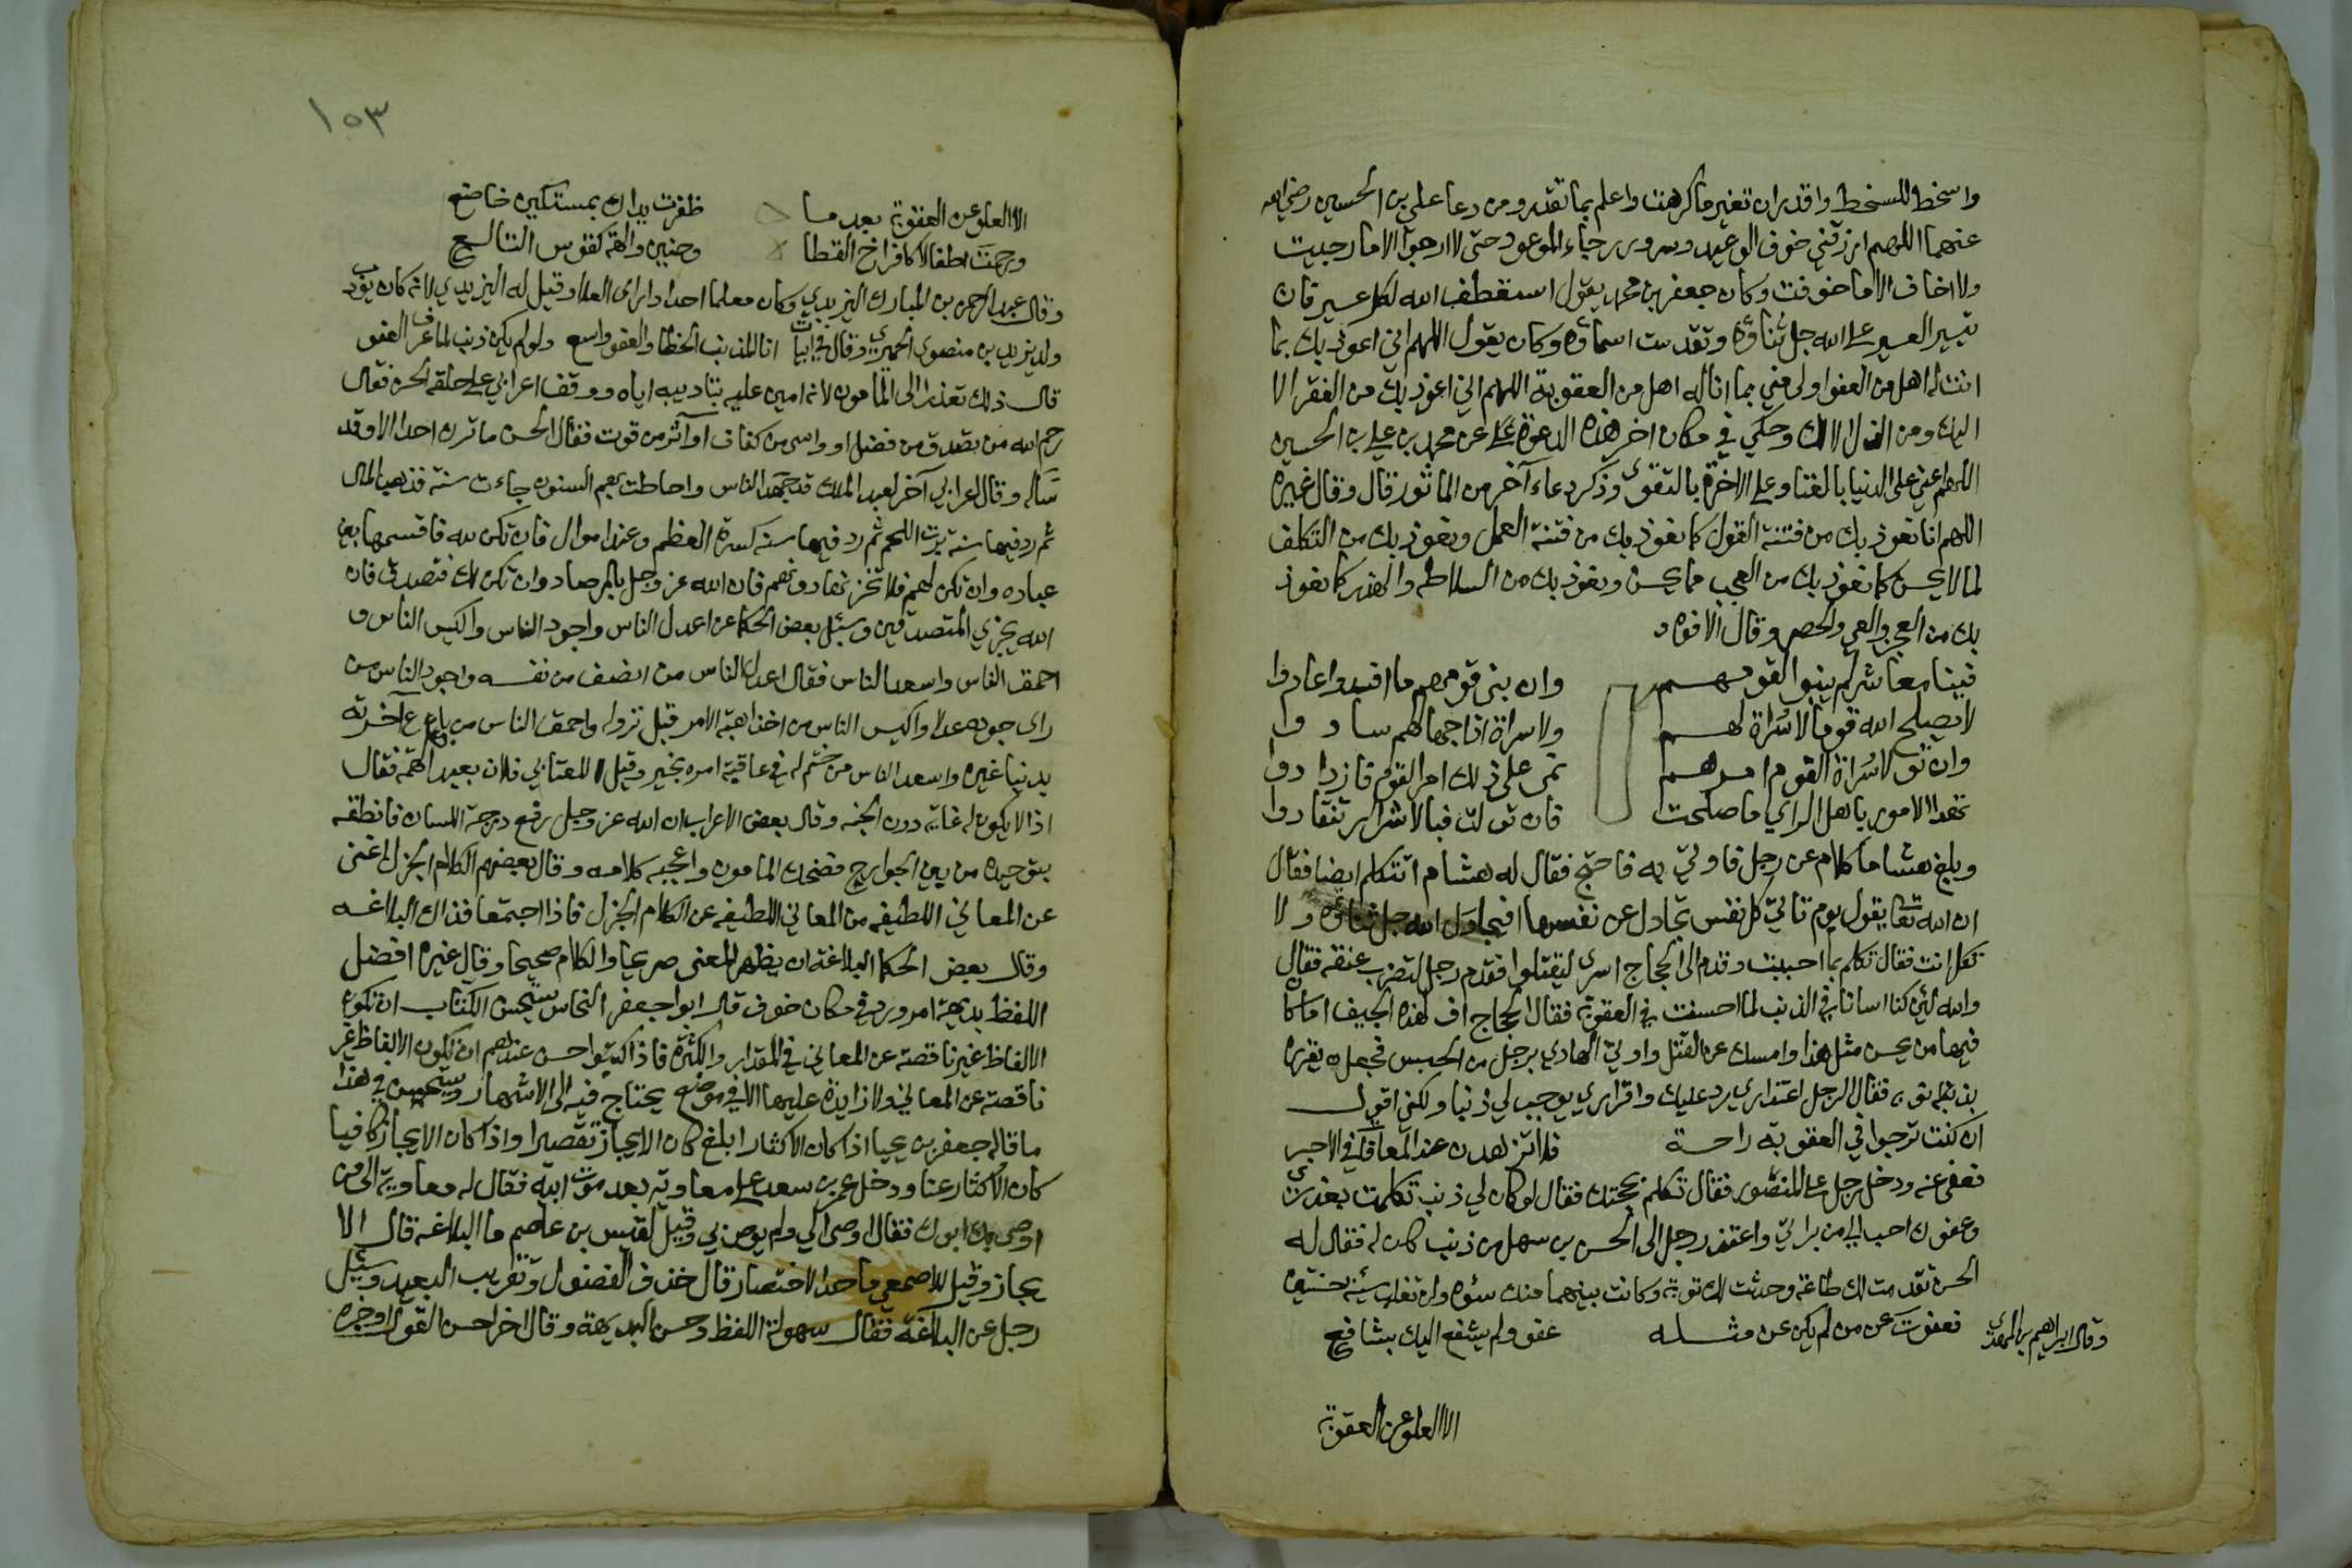 واسخط للسخط واقدر ان تغير ما كرهت واعلم بما تقدر ومن دعا علي بن الحسين رضي الله
عنهما اللهم ارزقني خوف الوعيد وسرور رجاء الموعود حتى لا ارجوا الا ما رجيت
ولا اخاف الا ما خوفت وكان جعفر بن محمد يقول استقطف الله لكل عسير فان
تيسير العسير على الله جل ثناؤه وتقدست اسماؤه وكان يقول اللهم اني اعوذ بك بما
انت له اهل من العفو اولى مني بما انا له اهل من العقوبة اللهم اني اعوذ بك من الفقر الا
اليك ومن الذل الا لك وحكي في مكان اخر هذه الدعوة عن محمد بن علي بن الحسين
اللهم اعني على الدنيا بالغنا وعلى الاخرة بالتقوى وذكر دعاء آخر من الماثور قال وقال غيره
اللهم انا نعوذ بك من فتنة القول كما نعوذ بك من فتنة العمل ونعوذ بك من التكلف
لما لا يحسن كما نعوذ بك من العجب مما يحسن ونعوذ بك من السلاطه والهذر كما نعوذ
بك من العي والحصر وقال الافوه
فينا معاشر لم يبنوا لقومهم وان بنى قومهم ما افسدوا عادوا
لا يصلح الله قوما لا سراة لهم ولا سراة اذا جهالهم سادوا
وان تولا سراة القوم امرهم نمى على ذلك امر القوم فازدادوا
تهدا الامور باهل الراي ما صلحت فان تولت فبالاشرار تنقادوا
وبلغ هشاما كلام عن رجل فاوتي به فاحتج فقال له هشام اتتكلم ايضا فقال
ان الله تعا يقول يوم تاتي كل نفس تجادل عن نفسها افيجادل الله جل ثناؤه ولا
تكلم انت فقال تكلم بما احببت وقدم الى الحجاج اسرى ليقتلوا فقدم رجل لتضرب عنقه فقال
والله لئن كنا اسانا في الذنب لما احسنت في العقوبة فقال الحجاج اف لهذه الجيف اما كان
فيها من يحسن مثل هذا وامسك عن القتل واوتي الهادي برجل من الحبس فجعل يقرره
بذنوبه فقال الرجل اعتذاري يرد عليك واقراري يوجب لي ذنبا ولكني اقول
ان كنت ترجوا في العقوبة راحة فلا تزهدن عند المعافاة في الاجر
فعفى عنه ودخل رجل على المنصور فقال تكلم بحجتك فقال لو كان لي ذنب تكلمت بعذري
وعفوك احب الي من براتي واعتذر رجل الى الحسن بن سهل من ذنب كان له فقال له
الحسن تقدمت لك طاعة وحدثت لك توبة وكانت بينهما منك سؤه ولن تغلب سيئة حسنتين
وقال ابراهيم بن المهدي فعفوت عن من لم يكن عن مثله عفو ولم يشفع اليك بشافع
الا العلو عن العقوبة
١٥٣
الا العلو عن العقوبة بعد ما ظفرت يداك بمستكين خاضع
ورحمت اطفالا كافراخ القطا وحنين والهة كقوس النازع
وقال عبد الرحمن بن المبارك اليزيدي وكان معلما وقيل له اليزيدي لانه كان يؤدب
ولد يزيد بن منصور الحميري وقال في ابيات انا المذنب الخطا والعفو واسع ولو لم يكن ذنب لما عرف العفو
قال ذلك تعذرا الى المامون لانه امين عليه بتاديبه اياه ووقف اعرابي على حلقة الحسن فقال
رحم الله من تصدق من فضل او واسى من كفاف او آثر من قوت فقال الحسن ما ترك احدا الا وقد
سأله وقال اعرابي آخر لعبد الملك قد جهد الناس واحاطت بهم السنون جاءت سنة فذهبت المال
ثم ردفتها سنة برت اللحم ثم ردفيها سنة كسرة العظم وعندك اموال فان تكن لله فاقسمها بين
عباده وان تكن لهم فلا تخزنها دونهم فان الله عز وجل بالمرصاد وان تكن لك فتصدق فان
الله يجزي المتصدقين وسئل بعض الحكما عن اعدل الناس واجود الناس واكيس الناس و
احمق الناس واسعد الناس فقال اعدل الناس من انصف من نفسه واجود الناس من
راى جوده عدلا واكيس الناس من اخذ اهبة الامر قبل نزوله واحمق الناس من باع آخرته
بدنيا غيره واسعد الناس من ختم له في عاقبة امره بخير وقيل للعتابي فلان بعيد الهمة فقال
اذا لا يكون له غاية دون الجنه وقال بعض الاعراب ان الله عز وجل رفع درجة اللسان فانطقه
بتوحيده من بين الجوارح فضحك المامون واعجبه كلامه وقال بعضهم الكلام الجزل اغنى
عن المعاني اللطيفه من المعاني اللطيفه عن الكلام الجزل فاذا اجتمعا فذاك البلاغه
وقال بعض الحكما البلاغة ان يظهر المعنى صريحا والكلام صحيحا وقال غيره افضل
اللفظ بديهة امر ورد في مكان خوف قال ابو جعفر النحاس يستحسن الكتاب ان تكون
الالفاظ غير ناقصة عن المعاني في المقدار والكثرة فاذا كتبوا حسن عندهم ان تكون الالفاظ غير
ناقصة عن المعاني ولا زايدة عليها الا في موضع يحتاج فيه الى الاسهاب ويستحسن في هذا
ما قاله جعفر بن يحيا اذا كان الاكثار ابلغ كان الايجاز تقصيرا واذا كان الايجاز كافيا
كان الاكثار عنا ودخل عمر بن سعد على معاوية بعد موت ابيه فقال له معاوية الى من
اوصى بك ابوك فقال اوصى الي ولم يوص بي وقيل لقيس بن عاصم ما البلاغه قال الا
يجاز وقيل للاصمعي ما حد الاختصار قال حذف الفضول وتقريب البعيد وسئل
رجل عن البلاغة فقال سهولة اللفظ وحسن البديهة وقال اخر احسن القول اوجزه